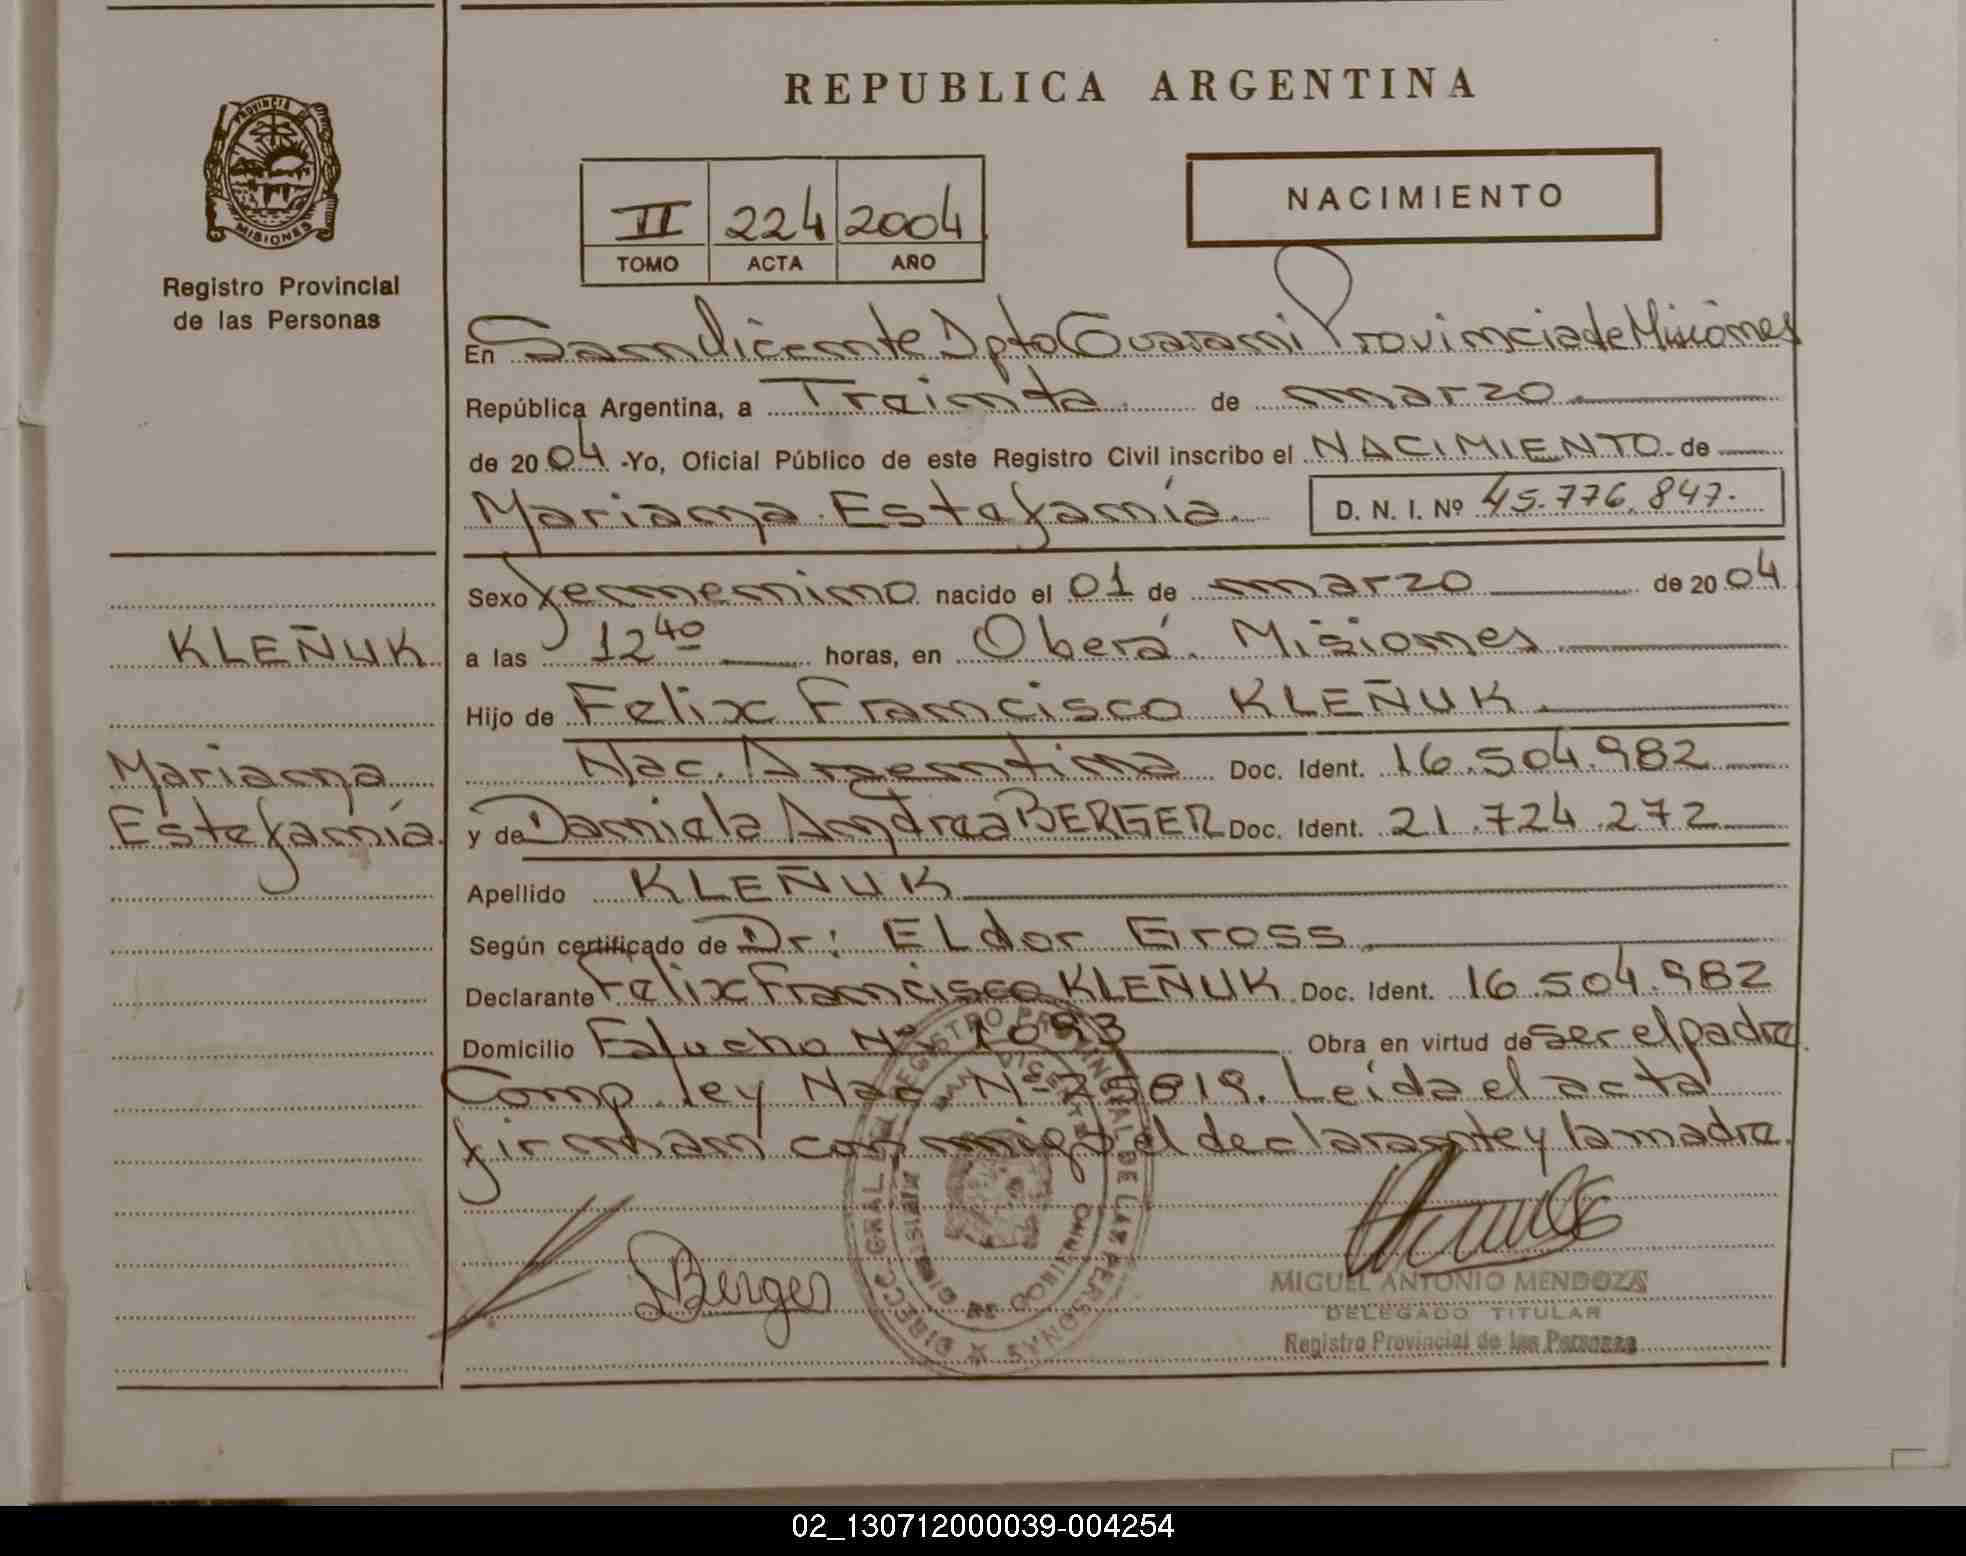 REPUBLICA ARGENTINA
PROVINCIA DE
MISIONES
Registro Provincial
de las Personas
II 224 2004
TOMO ACTA AÑO
NACIMIENTO
En San Vicente Dpto Guarani Provincia de Misiones
República Argentina, a Treinta de marzo
de 2004 -Yo, Oficial Público de este Registro Civil inscribo el NACIMIENTO de
Mariana Estefanía D. N. I. Nº 45.776.847.
Sexo femenino nacido el 01 de marzo de 2004
a las 12 40 horas, en Oberá. Misiones
Hijo de Felix Francisco KLEÑUK
Nac. Argentina Doc. Ident. 16.504.982
y de Daniela Andrea BERGER Doc. Ident. 21.724.272
Apellido KLEÑUK
Según certificado de Dr: ELdor Gross
Declarante Felix Francisco KLEÑUK Doc. Ident. 16.504.982
Domicilio Falucho Nº 1093 Obra en virtud de ser el padre
Comp. ley Nac Nº 25819. Leída el acta
firman conmigo el declarante y la madre.
KLEÑUK
Mariana
Estefanía
Berger
DIRECC. GRAL DEL REGISTRO PROVINCIAL DE LAS PERSONAS
SAN VICENTE
MISIONES
MIGUEL ANTONIO MENDOZA
DELEGADO TITULAR
Registro Provincial de las Personas
02_130712000039-004254